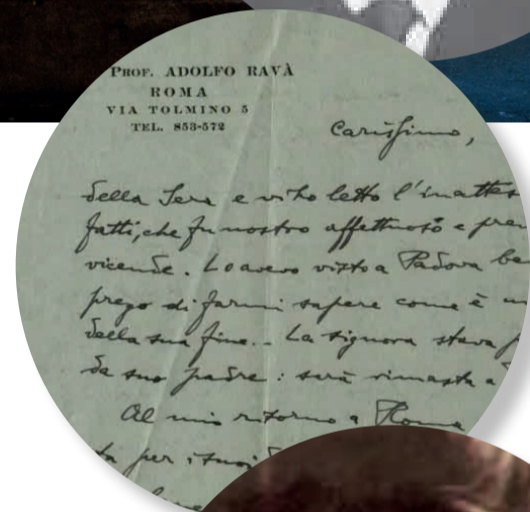 PROF. ADOLFO RAVÀ
ROMA
VIA TOLMINO 5
TEL. 853-572
Carissimo,
della Sera e vi ho letto l'inattes
fatti, che fu nostro affettuoso e pre
vicende. Lo avevo visto a Padova be
prego di farmi sapere come è
della sua fine. - La signora stava
da suo padre: sarà rimasta a
Al mio ritorno a Roma
per i tuoi